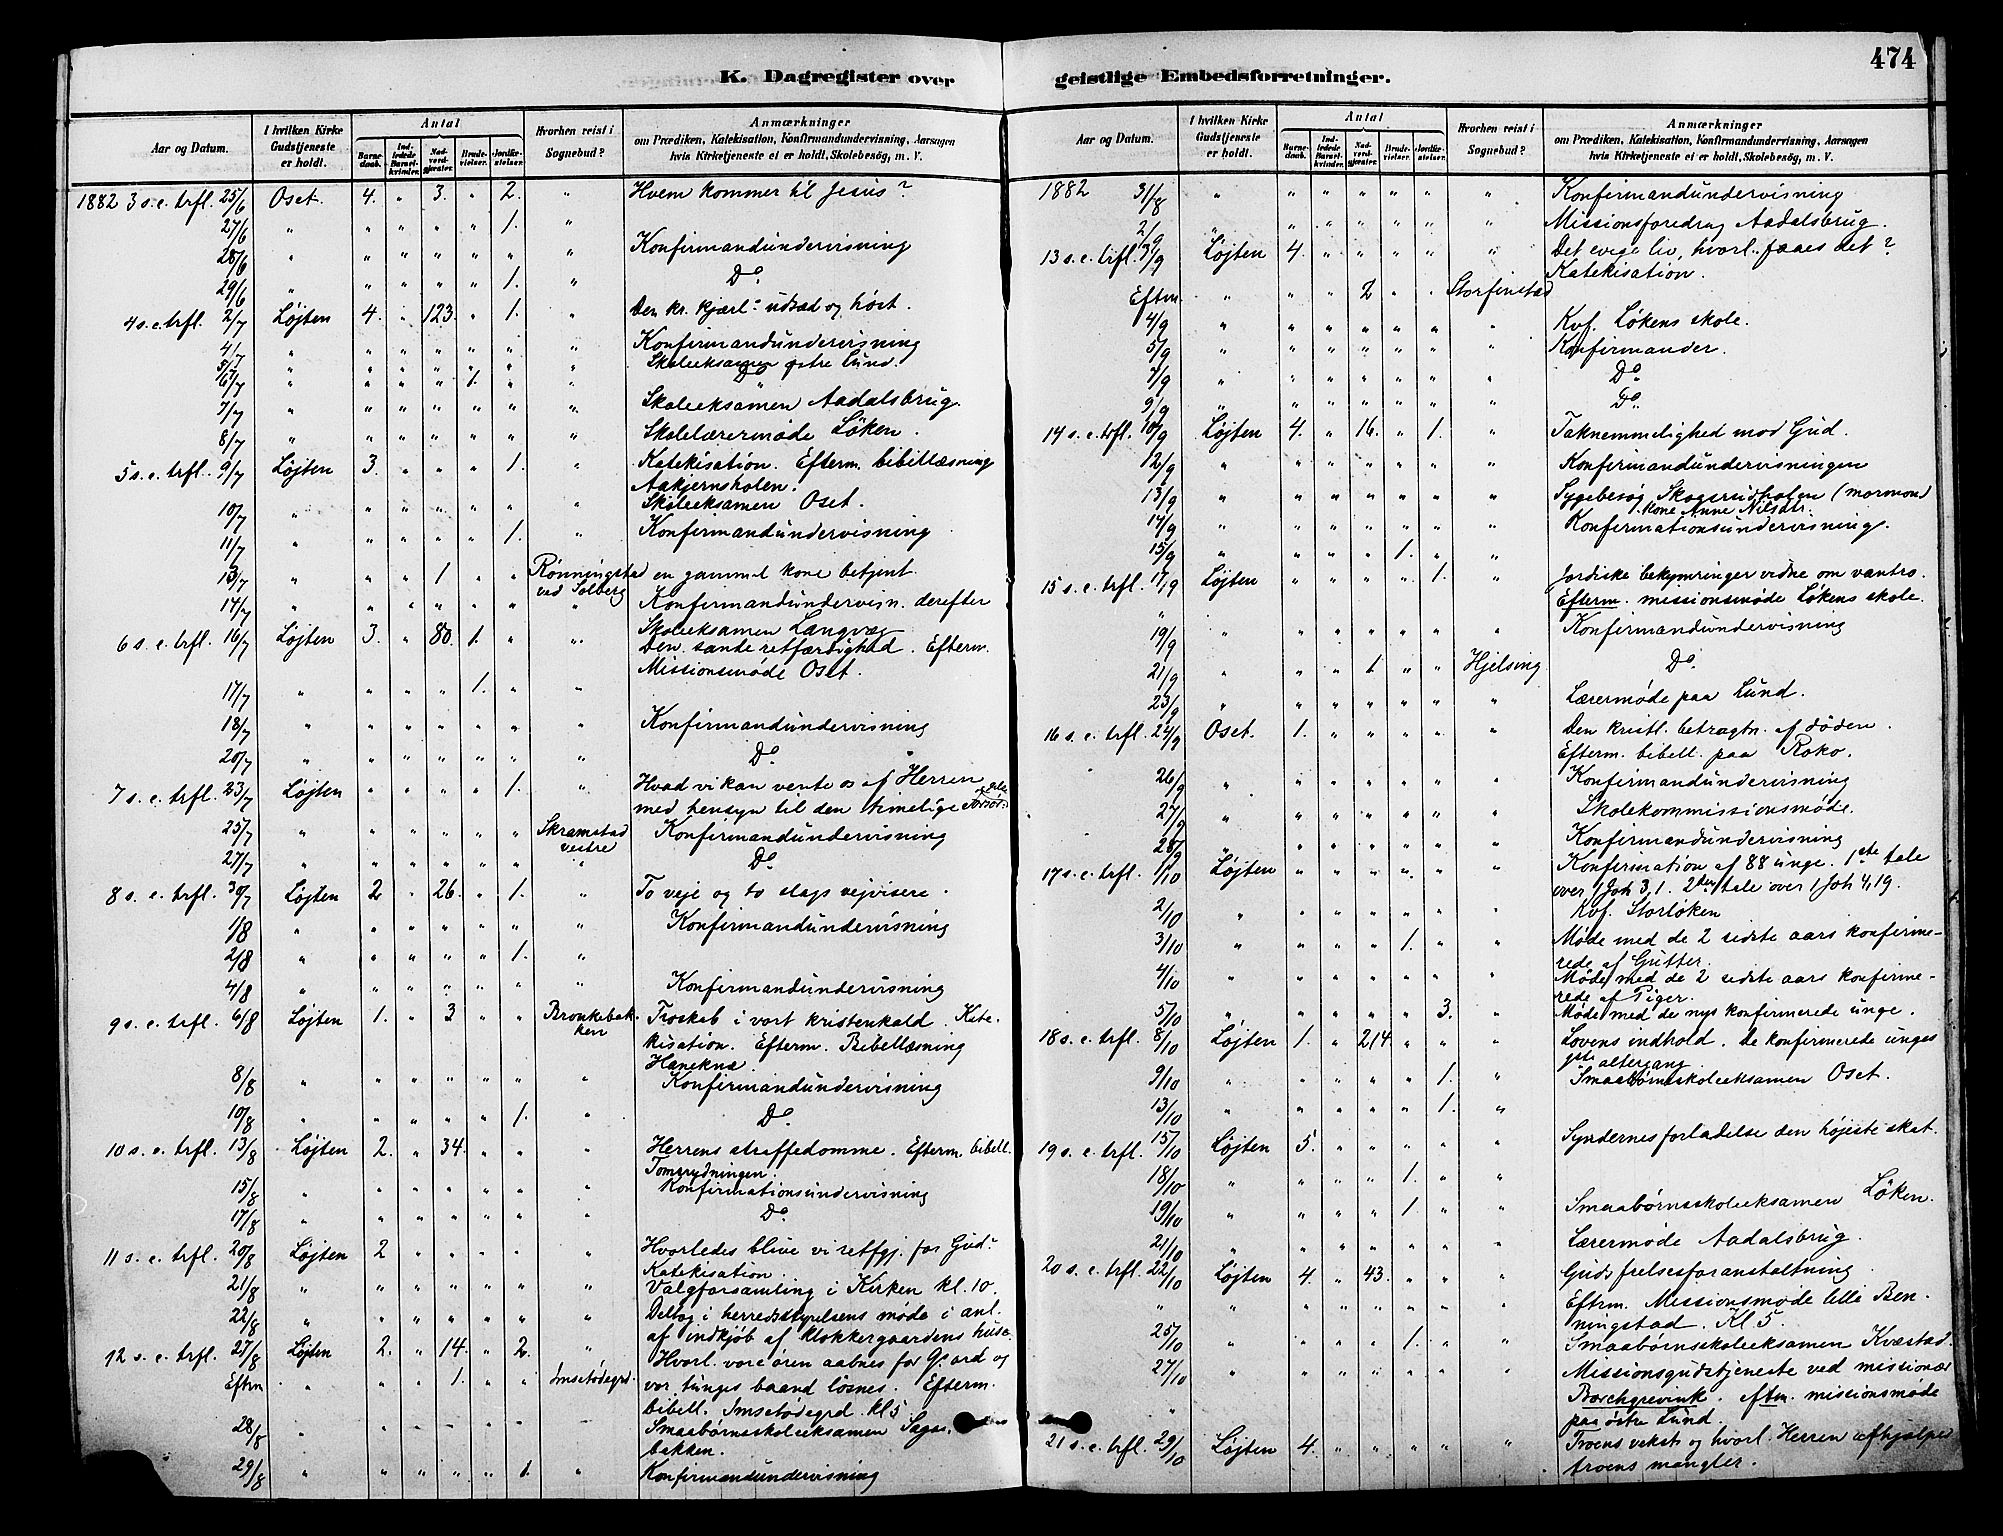 474
K. Dagregister over geistlige Embedsforretninger.
Aar og Datum. I hvilken Kirke Gudstjeneste er holdt. Antal Barnedaab. Indledede Barselkvinder. Nadverdgjester. Brudevielser. Jordfæstelser. Hvorhen reist i Sognebud? Anmærkninger om Prædiken, Katekisation, Konfirmandundervisning, Aarsagen hvis Kirketjeneste ei er holdt, Skolebesög, m. V.
1882 3 s. e. trfl. 25/6 Oset. 4. " 3. " 2. " Hvem kommer til Jesus?
27/6 " " " " " 1. "
28/6 " " " " " " " Konfirmandundervisning
29/6 " " " " " 1. " Do
4 s. e. trfl. 2/7 Løjten 4. " 123. " 1. " Den kr. kjærl: udsæd og høst.
4/7 " " " " " " " Konfirmandundervisning
5/7 Skoleeksamen østre Lund.
6/7 " " " " 1. " " Do
7/7 " " " " " " " Skoleeksamen Aadalsbrug.
8/7 " " " " " " " Skolelærermøde Løken.
5 s. e. trfl. 9/7 Løjten 3. " " " 1. " Katekisation. Efterm. bibellæsning
Aakjernsholen.
10/7 " " " " " " " Skoleeksamen Oset.
11/7 " " " " " 1. " Konfirmandundervisning
13/7 " " " 1 " " Rønningstad ved Solberg en gammel kone betjent.
14/7 " " " " " " " Konfirmandundervisn. derefter
Skoleeksamen Langvæg
6 s. e. trfl. 16/7 Løjten 3. " 80. 1. " " Den sande retfærdighed. Efterm.
Missionsmøde Oset.
17/7 " " " " 1. " "
18/7 " " " " " " " Konfirmandundervisning
20/7 " " " " " " " Do
7 s. e. trfl. 23/7 Løjten " " " " 1. " Hvad vi kan vente os af Herren
med hensyn til den timelige
25/7 " " " " " " Skramstad vestre Konfirmandundervisning
27/7 " " " " " " " Do
8 s. e. trfl. 30/7 Løjten 2 " 26. " 1. " To veje og to slags vejvisere.
1/8 " " " " " " " Konfirmandundervisning
2/8 " " " " " 1. "
4/8 " " " " " " " Konfirmandundervisning
9 s. e. trfl. 6/8 Løjten 1. " 3 " " Bronkebakken Troskab i vort kristenkald. Kate-
kisation. Efterm. Bibellæsning
Haneknæ.
8/8 " " " " " " " Konfirmandundervisning
10/8 " " " " " 1. " Do
10 s. e. trfl. 13/8 Løjten 2. " 34. " " " Herrens straffedomme. Efterm. bibell.
Tomsrydningen.
15/8 " " " " " " " Konfirmationsundervisning
17/8 " " " " " " " Do
11 s. e. trfl. 20/8 Løjten 2 " " " " " Hvorledes blive vi retfgj. for Gud?
Katekisation.
21/8 " " " " " " " Valgforsamling i Kirken kl. 10.
22/8 " " " " " " " Deltog i herredsstyrelsens møde i anl.
af indkjøb af klokkergaardens huse.
12 s. e. trfl. 27/8 Løjten 2. " 14. " 2. " Hvorl. vore øren aabnes for G: ord og
Eftm " " " 1. " " Imsetødegrd. vor tunges baand løsnes. Efterm.
bibell. Imsetødegrd. kl 5
28/8 " " " " " " " Smaabørnsskoleeksamen Sagas-
bakken.
29/8 " " " " " 1. " Konfirmandundervisning
Aar og Datum. I hvilken Kirke Gudstjeneste er holdt. Antal Barnedaab. Indledede Barselkvinder. Nadverdgjester. Brudevielser. Jordfæstelser. Hvorhen reist i Sognebud? Anmærkninger om Prædiken, Katekisation, Konfirmandundervisning, Aarsagen hvis Kirketjeneste ei er holdt, Skolebesög, m. V.
1882 31/8 " " " " " " " Konfirmandundervisning
2/9 " " " " " " " Missionsforedrag Aadalsbrug.
13 s. e. trfl. 3/9 Løjten 4. " " " " " Det evige liv, hvorl. faaes det?
Katekisation.
Eftm " " " 2 " " Storfinstad
4/9 " " " " " " " Kvf. Løkens skole.
5/9 " " " " " " " Konfirmander.
7/9 " " " " " " " Do
9/9 " " " " " " " Do.
14 s. e. trfl. 10/9 Løjten 4. " 16. " 1. " Taknemmelighed mod Gud.
12/9 " " " " " " " Konfirmandundervisningen
13/9 " " " " " " " Sygebesøg Skogsrudholen (mormon)
kone Anne Nilsdtr.
14/9 " " " " " " " Konfirmationsundervisning.
15/9 " " " " 1. " "
15 s. e. trfl. 17/9 Løjten " " " " 1. " Jordiske bekymringer vidne om vantro.
" Efterm. missionsmøde Løkens skole.
19/9 " " " " " " " Konfirmandundervisning
21/9 " " " 1 " " Hjelsing Do.
23/9 " " " " " " " Lærermøde paa Lund.
16 s. e. trfl. 24/9 Oset. 1. " " " " " Den kristl. betragtn. af døden.
Efterm. bibell. paa Roko.
26/9 " " " " " " " Konfirmandundervisning
27/9 " " " " " " " Skolekommissionsmøde.
28/9 " " " " " " " Konfirmandundervisning
17 s. e. trfl. 1/10 Løjten " " " " " " Konfirmation af 88 unge. 1ste tale
over 1 Joh 3,1. 2den tale over 1 Joh 4,19.
2/10 " " " " " " " Kvf. Storløken
3/10 " " " " 1. " " Møde med de 2 sidste aars konfirme-
rede af Gutter.
4/10 " " " " " " " Møde med de 2 sidste aars konfirme-
rede af Piger.
5/10 " " " " " 3. " Møde med de nys konfirmerede unge.
18 s. e. trfl. 8/10 Løjten 1. " 214 " " " Lovens indhold. De konfirmerede unges
1ste altergang
9/10 " " " " " 1. " Smaabørnsskoleeksamen Oset.
13/10 " " " " " 1. "
19 s. e. trfl. 15/10 Løjten 5. " " " " " Syndernes forladelse den højeste skat.
18/10 " " " " 1. " "
19/10 " " " " 1. " " Smaabørnsskoleeksamen Løken.
21/10 " " " " " " " Lærermøde Aadalsbrug.
20 s. e. trfl. 22/10 Løjten 4. " 43. " " " Guds frelsesforanstaltning
" " " " " " " " Eftrm. Missionsmøde lille Ben-
ningstad. Kl. 5.
25/10 " " " " 1. " " Smaabørnsskoleeksamen Kværstad
27/10 " " " " " " " Missionsgudstjeneste ved missionær
Borchgrevink. eftm. missionsmøde
paa østre Lund.
21 s. e. trfl. 29/10 Løjten 4. " " " " " Troens vekst og hvorl. Herren afhjælper
troens mangler.